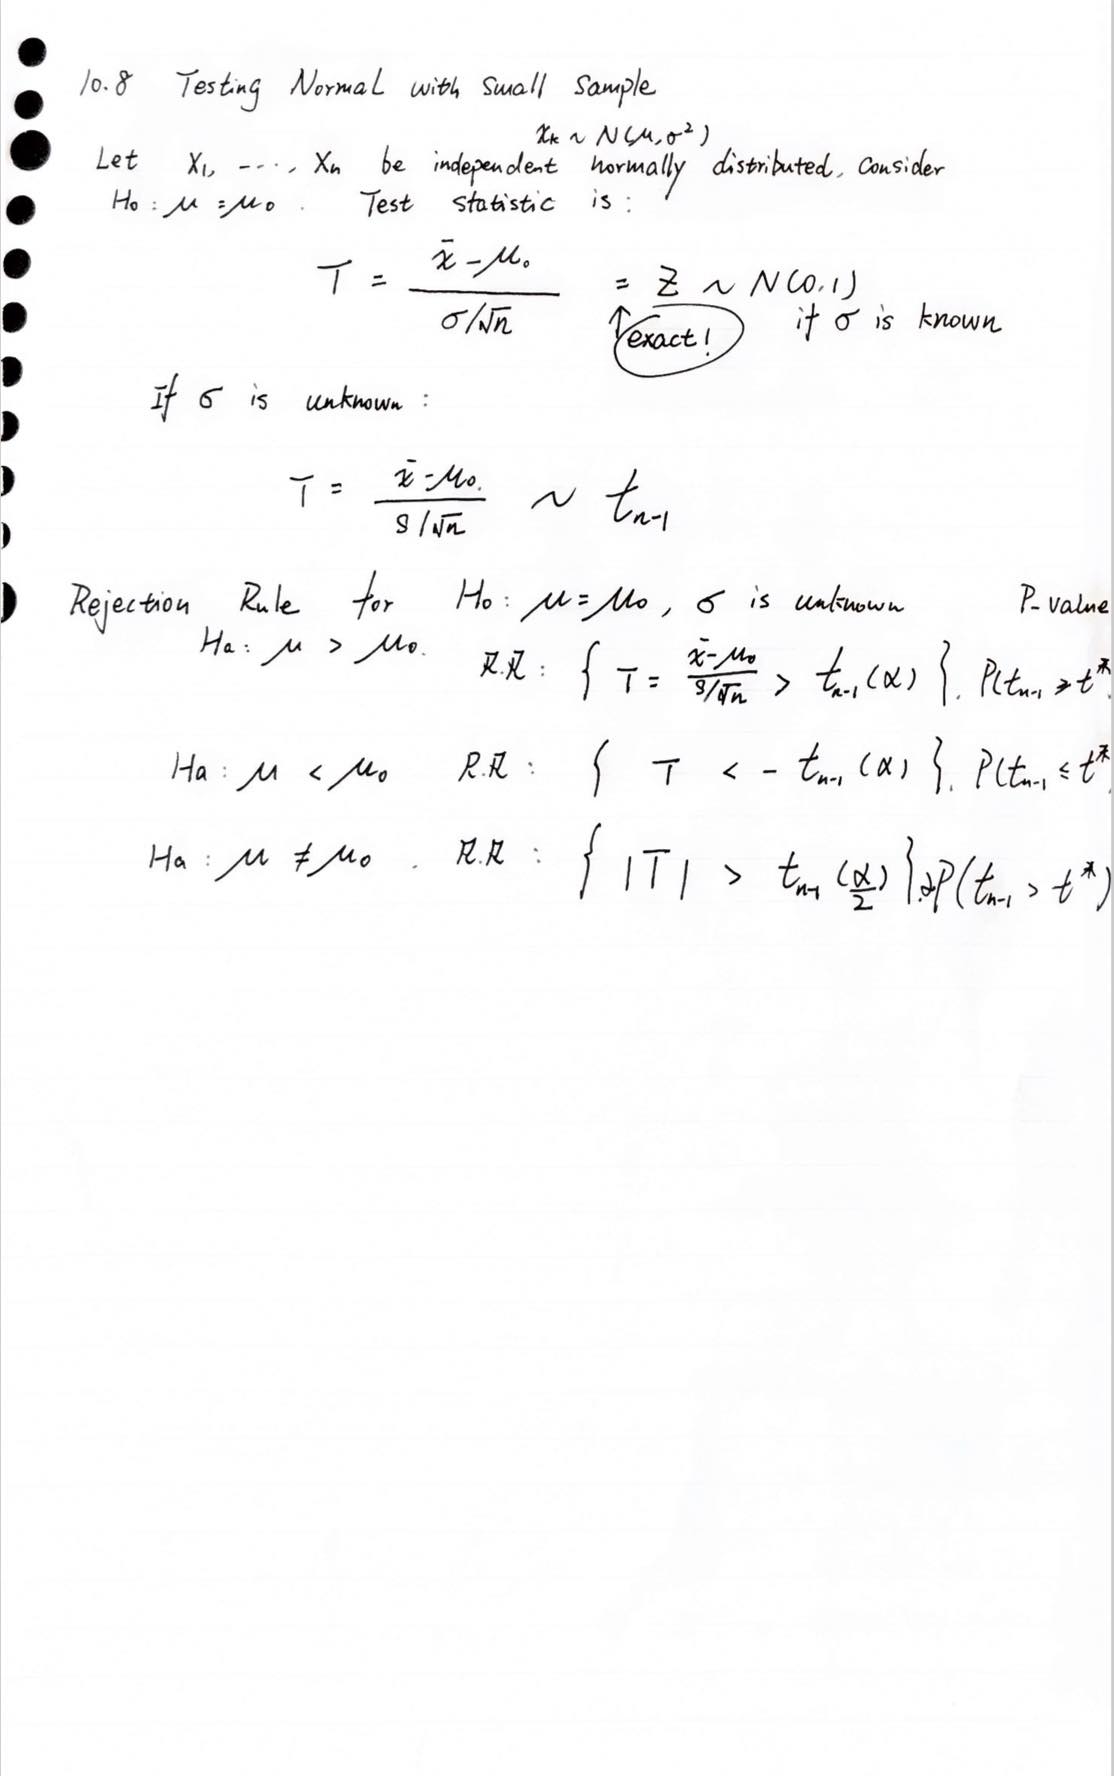 10.8 Testing Normal with Small Sample
Xk ~ N(μ, σ²)
Let X1, ...., Xn be independent normally distributed. Consider
Ho : μ = μo . Test statistic is :
T = (x̄ - μo) / (σ/√n) = Z ~ N(0,1)
exact! if σ is known
If σ is unknown :
T = (x̄ - μo) / (S/√n) ~ tn-1
Rejection Rule for Ho : μ = μo, σ is unknown P-value
Ha : μ > μo. R.R : { T = (x̄ - μo) / (S/√n) > tn-1 (α) }. P(tn-1 ≥ t*
Ha : μ < μo R.R : { T < - tn-1 (α) }. P(tn-1 ≤ t*
Ha : μ ≠ μo . R.R : { |T| > tn-1 (α/2) }. 2P(tn-1 > t*)